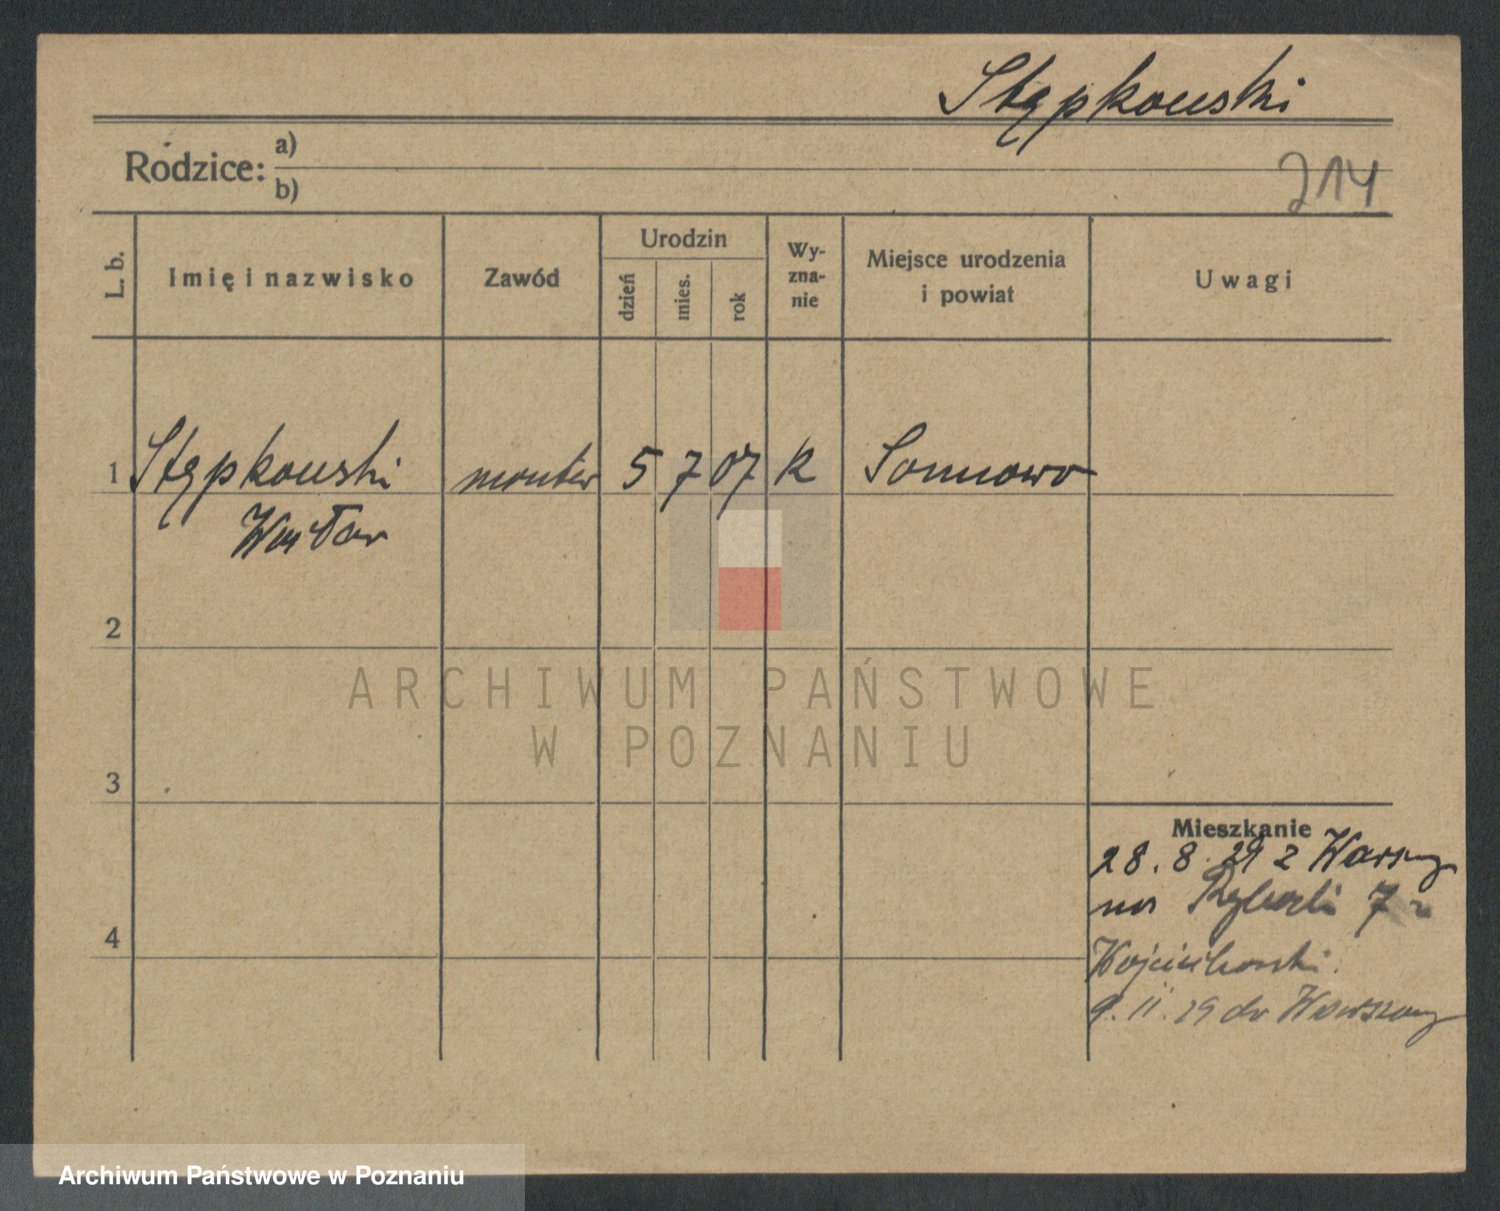 Stępkowski
Rodzice: a)
b)
214
L. b.
Imię i nazwisko
Zawód
Urodzin
dzień
mies.
rok
Wy-
zna-
nie
Miejsce urodzenia
i powiat
Uwagi
1 Stępkowski monter 5 7 07 k
Wacław
2
3
4
Mieszkanie
28. 8. 29 z Warszawy
na 7
Wojciechowski
9. 11. 29 do Warszawy
ARCHIWUM PAŃSTWOWE
W POZNANIU
Archiwum Państwowe w Poznaniu